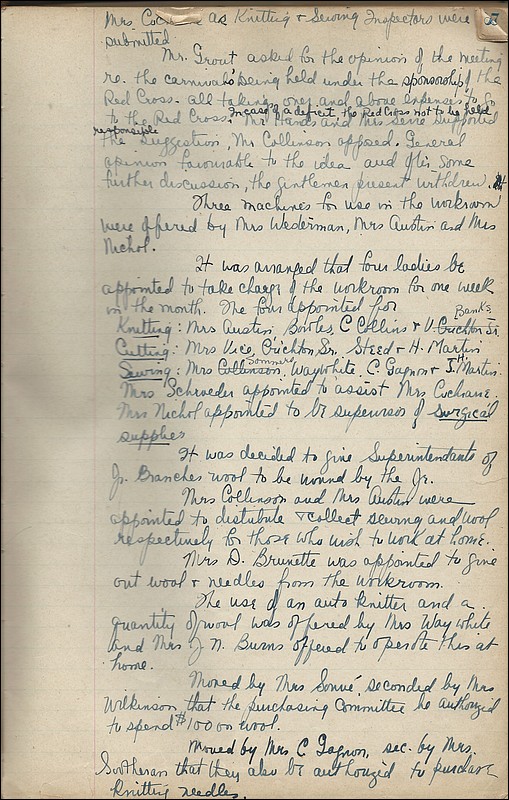 Mrs Coc as Knitting & Sewing Inspectors were
submitted
Mr. Grout asked for the opinion of the meeting
re. the carnivals being held under the sponsorship of the
Red Cross. all takings over and above expenses to go
to the Red Cross. In case of a deficit, the Red Cross not to be held
responsible Mr Hands and Mrs supported
the suggestion, Mr Collinson opposed. General
opinion favourable to the idea and after some
further discussion, the gentlemen present withdrew.
Three machines for use in the workroom
were offered by Mrs Wederman, Mrs Austin and Mrs
Nichol.
It was arranged that four ladies be
appointed to take charge of the workroom for one week
in the month. The four appointed for
Banks
Knitting: Mrs Austin Bowles, C Collins & V. Crichton Jr.
Cutting: Mrs Vice, Crichton Sr. Steed & H. Martin
Sommers H.
Sewing: Mrs Collinson, Waywhite, C Gagnon & J. Martin.
Mrs Schroeder appointed to assist Mrs Cochrane.
Mrs Nichol appointed to be supervisor of surgical
supplies
It was decided to give Superintendants of
Jr. Branches wool to be wound by the Jr.
Mrs Collinson and Mrs Austin were
appointed to distribute & collect sewing and wool
respectively for those who wish to work at home.
Mrs D. Brunette was appointed to give
out wool & needles from the workroom.
The use of an auto knitter and a
quantity of wool was offered by Mrs Waywhite
and Mrs J. N. Burns offered to operate this at
home.
Moved by Mrs seconded by Mrs
Wilkinson, that the purchasing Committee be authorized
to spend $100 on wool.
Moved by Mrs C Gagnon, sec. by Mrs.
Sootheran that they also be authorized to purchase
knitting needles.